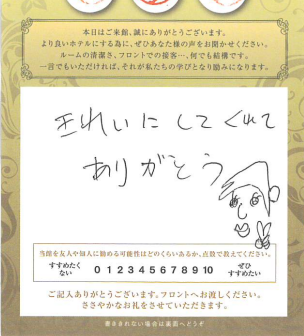 本日はご来館、誠にありがとうございます。
より良いホテルにする為に、ぜひあなた様の声をお聞かせください。
ルームの清潔さ、フロントでの接客…、何でも結構です。
一言でもいただければ、それが私たちの学びとなり励みになります。
きれいにしてくれて
ありがとう
当館を友人や個人に勧める可能性はどのくらいあるか、点数で教えてください。
すすめたく
ない
0 1 2 3 4 5 6 7 8 9 10
ぜひ
すすめたい
ご記入ありがとうございます。フロントへお渡しください。
ささやかなお礼をさせていただきます。
書ききれない場合は裏面へどうぞ